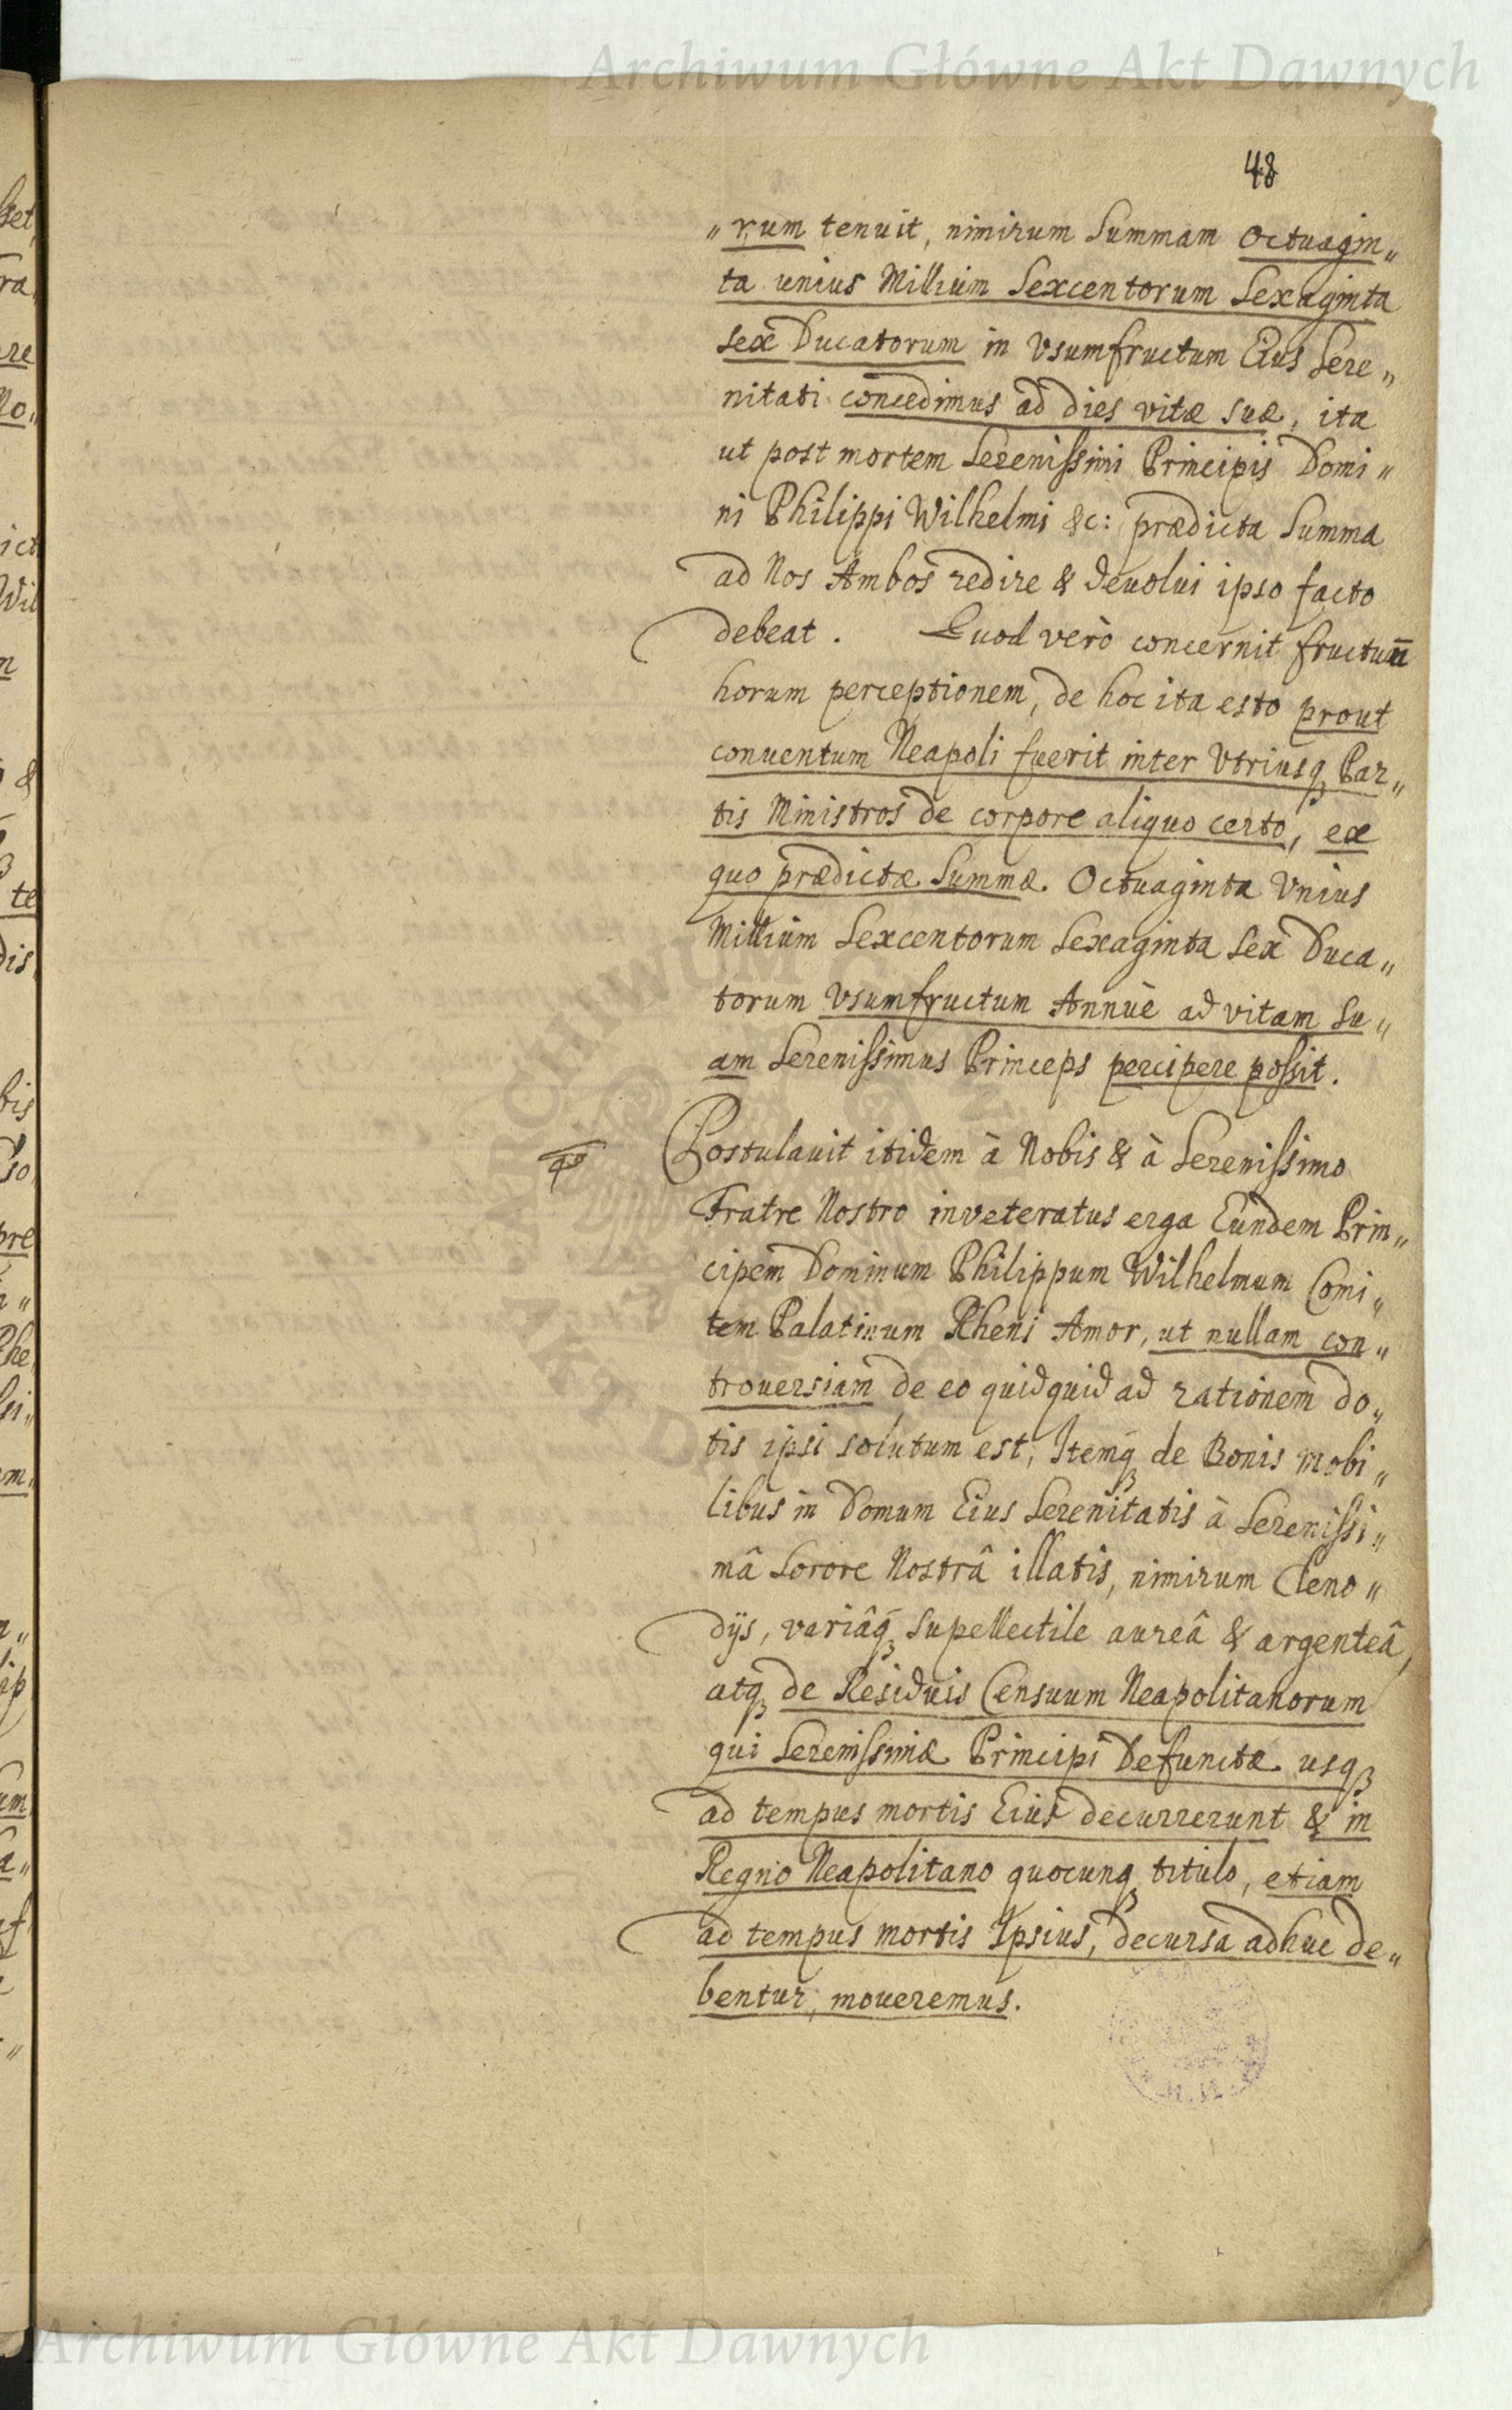 Archiwum Główne Akt Dawnych
48
„rum tenuit, nimirum Summam Octuagin„
ta unius Millium Sexcentorum Sexaginta
sex Ducatorum in Vsumfructum Eius Sere„
nitati concedimus ad dies vitæ suæ, ita
ut post mortem Serenissimi Principis Domi„
ni Philippi Wilhelmi &c: prædicta Summa
ad Nos Ambos redire & devolui ipso facto
debeat. Quod verò concernit fructuū
horum perceptionem, de hoc ita esto prout
conuentum Neapoli fuerit inter Vtriusq Par„
tis Ministros de corpore aliquo certo, ex
quo prædictæ Summæ Octuaginta Vnius
Millium Sexcentorum Sexaginta Sex Duca„
torum Vsumfructum Annuè ad vitam Su„
am Serenissimus Princeps percipere possit.
Postulauit itidem à Nobis & à Serenissimo
Fratre Nostro inveteratus erga Eundem Prin„
cipem Dominum Philippum Wilhelmum Comi„
tem Palatinum Rheni Amor, ut nullam con„
trouersiam de eo quidquid ad rationem do„
tis ipsi solutum est, Itemq de Bonis mobi„
libus in Domum Eius Serenitatis à Serenissi„
mâ Sorore Nostrâ illatis, nimirum Cleno„
dijs, variâq supellectile aureâ & argenteâ,
atq de Residuis Censuum Neapolitanorum
qui Serenissimæ Principi Defunctæ usq
ad tempus mortis Eius decurrerunt & in
Regno Neapolitano quocunq titulo, etiam
ad tempus mortis Ipsius, decursa adhuc de„
bentur, moueremus.
Archiwum Główne Akt Dawnych